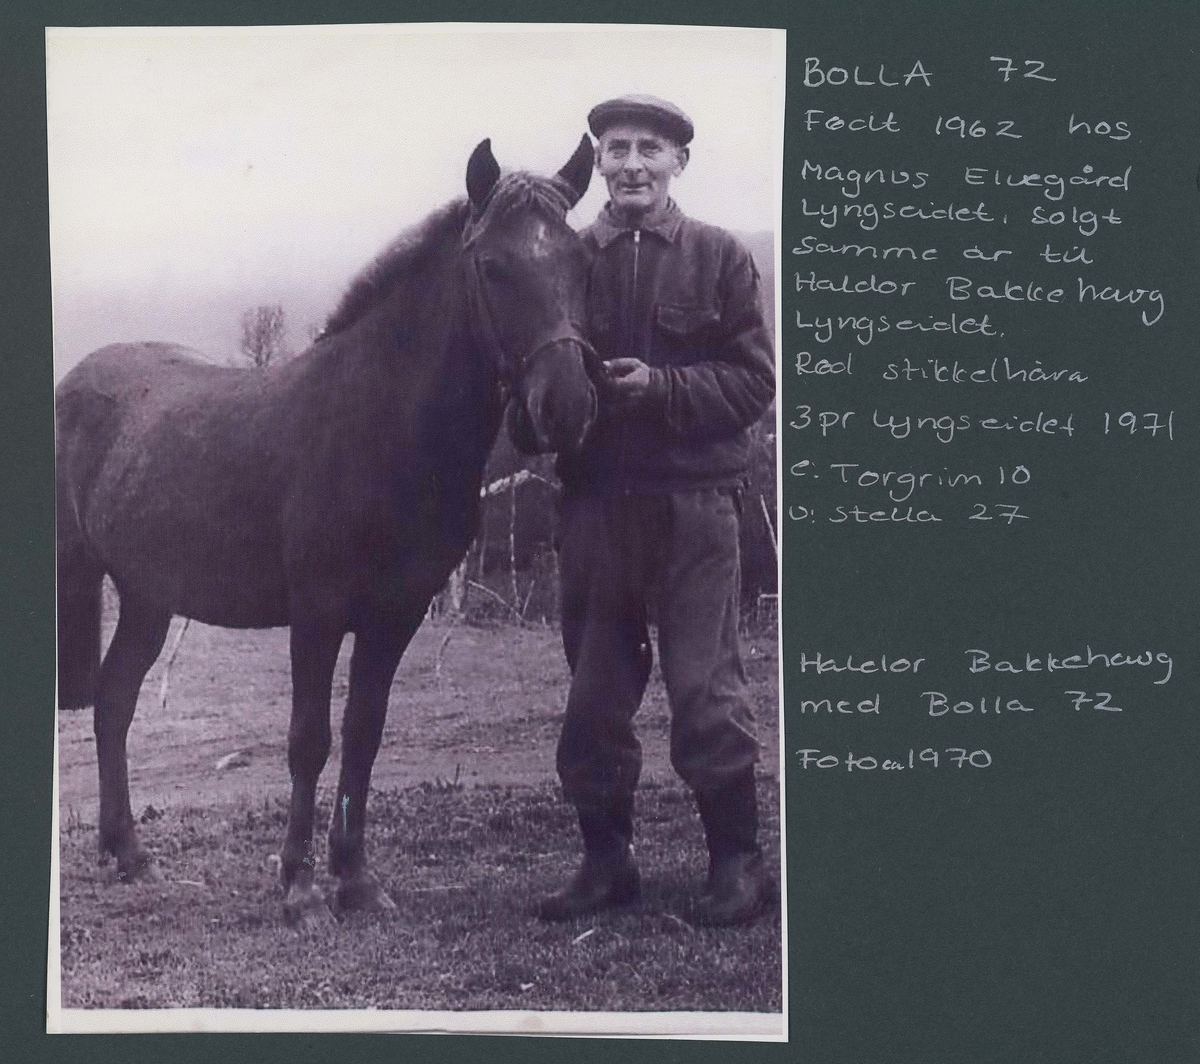 BOLLA 72
Født 1962 hos
Magnus Elvegård
Lyngseidet. Solgt
samme år til
Haldor Bakkehaug
Lyngseidet.
Rød stikkelhåra
3pr Lyngseidet 1971
e: Torgrim 10
u: Stella 27
Haldor Bakkehaug
med Bolla 72
Foto ca 1970